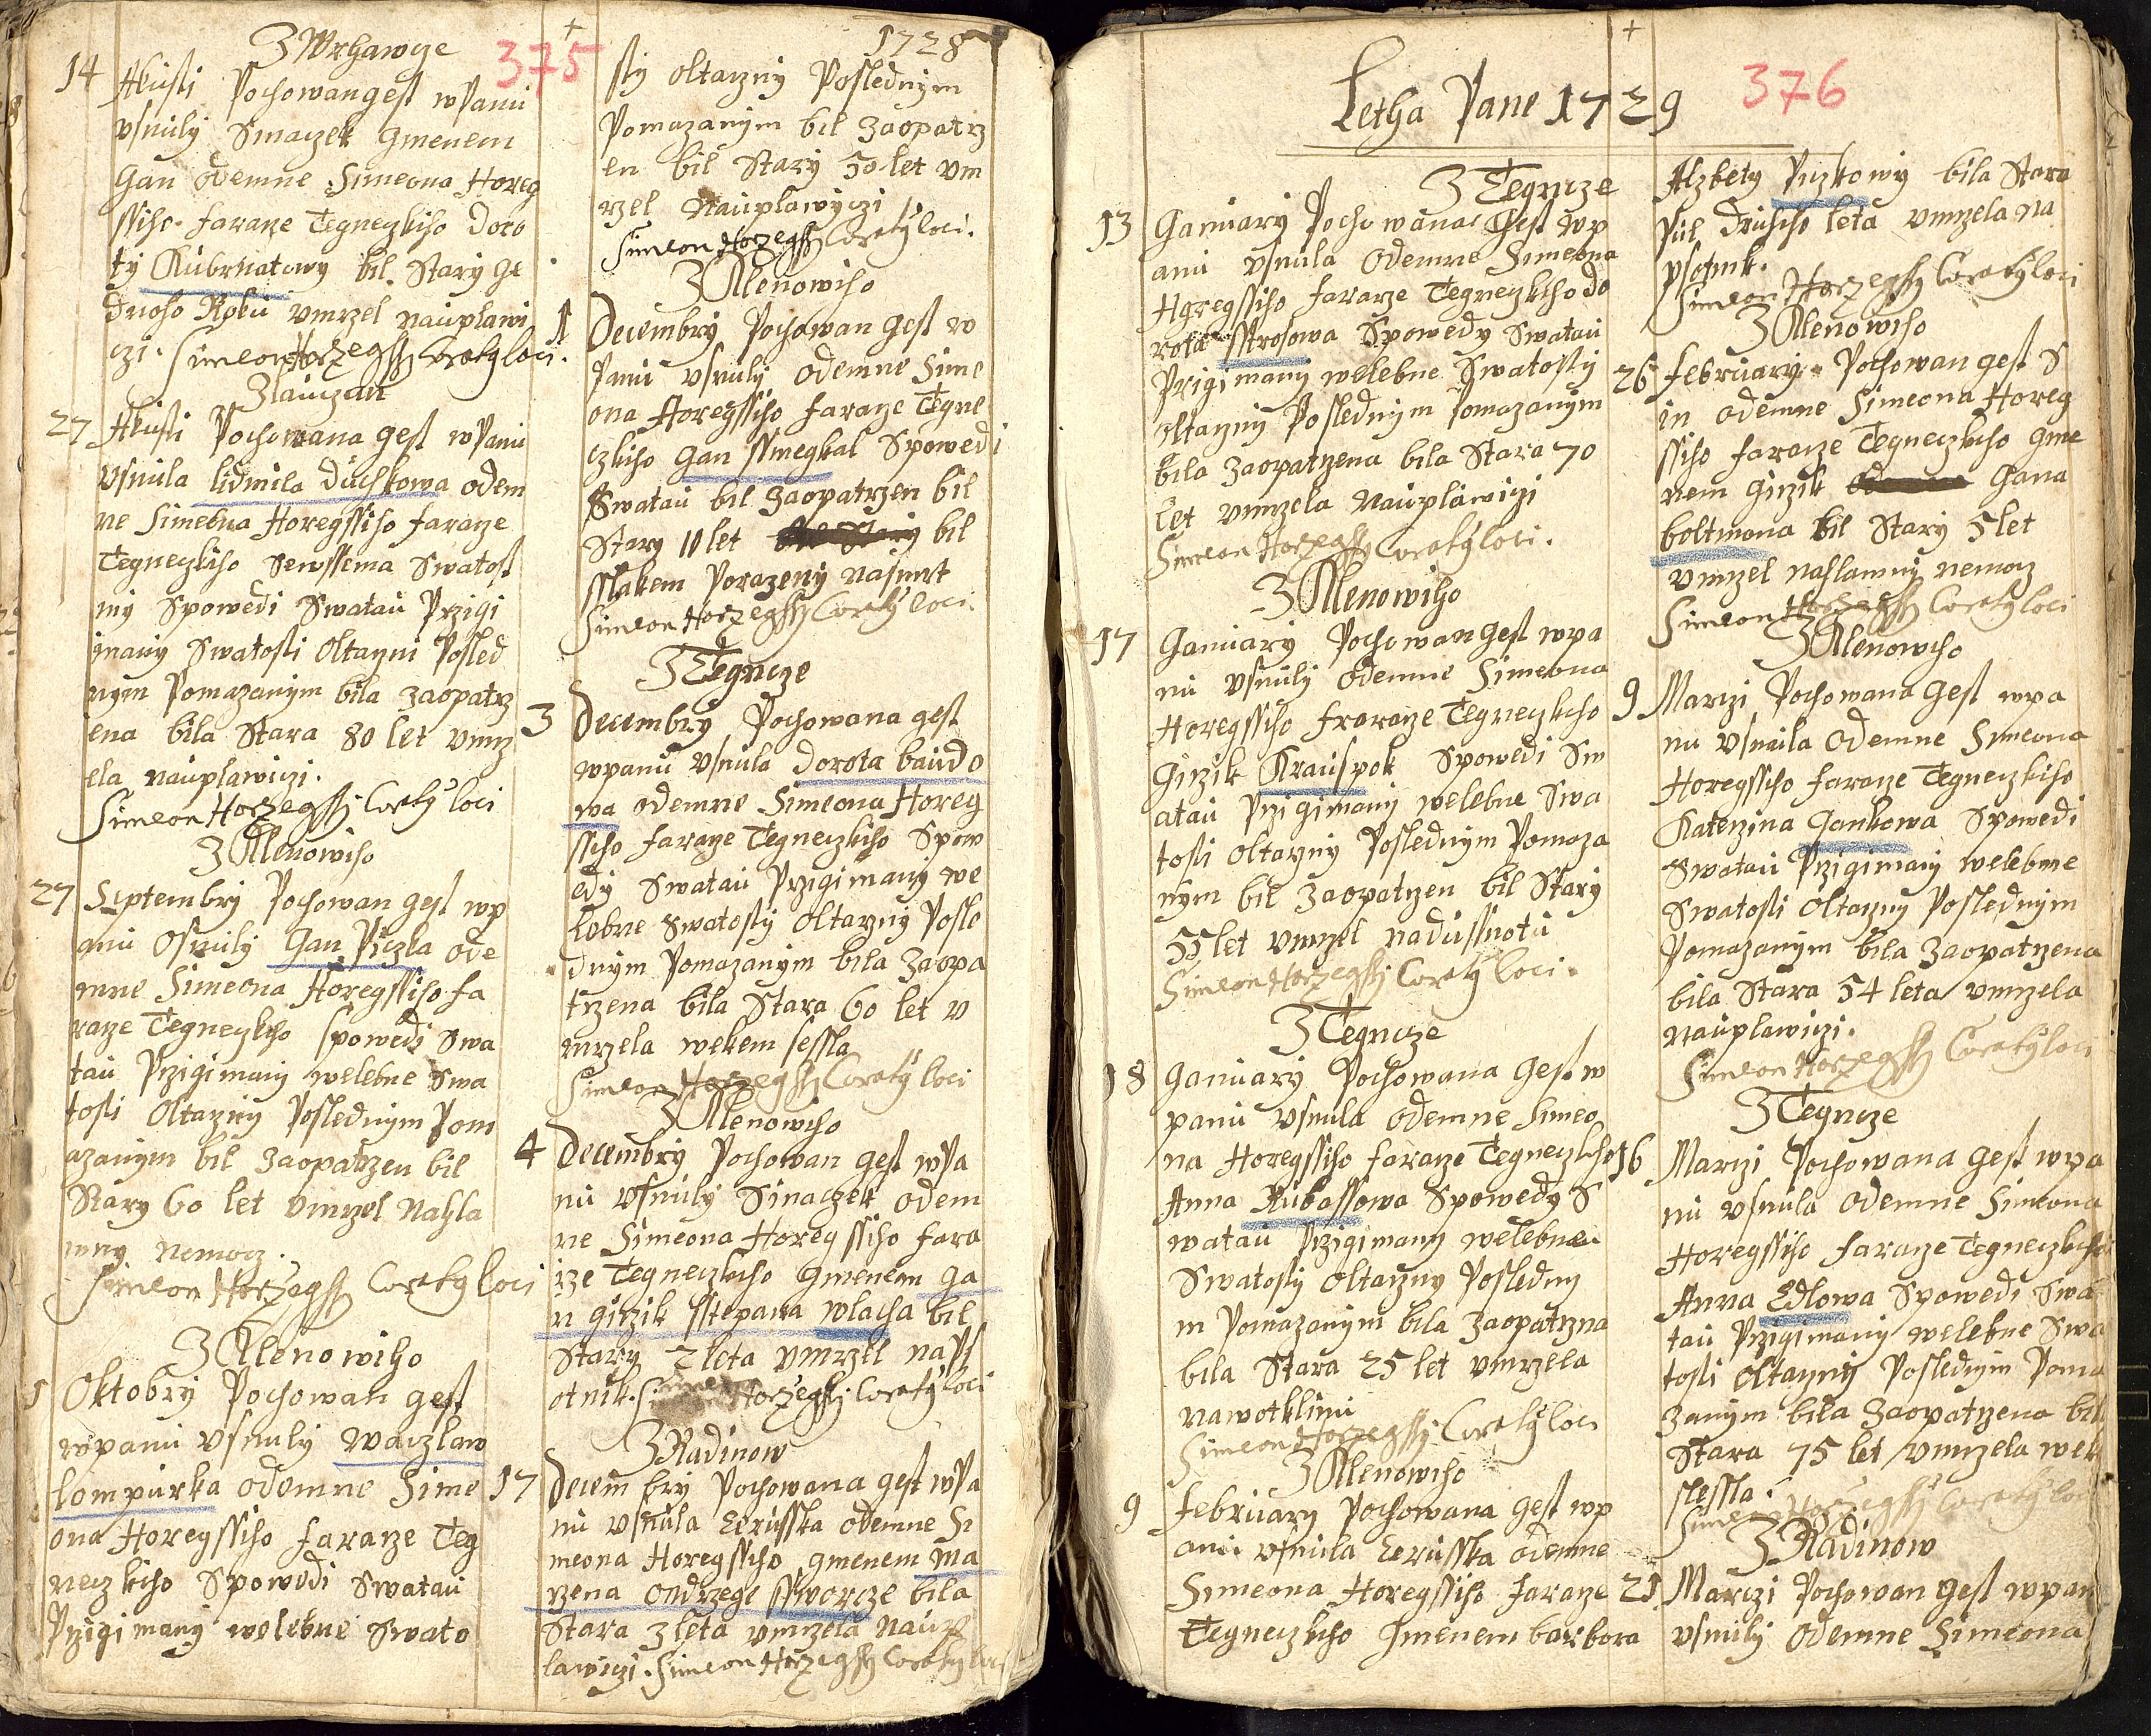 375
1728
Z Wrhawcze
14 Akusti Pochowan gest w Panu
usnuly Sinaczek Gmenem
Gan odemne Simeona Horeg
ssiho faraze Tegneczkiho Doro
ty Kubrnatowy bil Stary ge
dnoho Roku vmrzel naúplawi
czi. Simeon Horzegssy Coraty loci.
Z laúczan
27 Akusti Pochowana gest w Panu
usnula lidmila Dúchkowa odem
ne Simeona Horegssiho faraze
Tegneczkiho Sewssema Swatost
my Spowedi Swataú Przigi
many Swatosti Oltarzni Posled
nym Pomazanym bila zaopatrz
ena bila Stara 80 let vmrz
ela naúplawiczi.
Simeon Horzegssy Coraty loci
Z Alenowiho
27 Septembry Pochowan gest wp
anu Osnuly Gan Piczla ode
mne Simeona Horegssiho fa
raze Tegneczkiho Spowedi Swa
taú Przigimany welebne Swa
tosti Oltarzny Poslednym Pom
azanym bil zaopatrzen bil
Stary 60 let vmrzel Nahla
wny nemocz.
Simeon Horzegssy Coraty loci
Z Alenowiho
1 Oktobry Pochowan gest
wpanu usnuly Waczlaw
lompúrka odemne Sime
ona Horegssiho faraze Teg
neczkiho Spowedi Swataú
Przigimany welebne Swato
sty oltarzny Poslednym
Pomazanym bil zaopatrz
en bil Stary 50 let vm
rzel Naúplawyczi
Simeon Horzegssy Coraty loci.
Z Alenowiho
1 Decembry Pochowan gest w
Panu usnuly odemne Sime
ona Horegssiho faraze Tegne
czkiho Gan ssmegkal Spowedi
Swataú bil zaopatrzen bil
Stary 10 let bil
sslakem Porazeny nasmrt
Simeon Horzegssy Coraty loci
Z Tegncze
3 Decembry Pochowana gest
wpanu usnula Dorota baúdo
wa odemne Simeona Horeg
ssiho faraze Tegneczkiho Spow
edy Swataú Przigimany we
lebne Swatosty oltarzny Posle
dnym Pomazanym bila zaopa
trzena bila Stara 60 let v
mrzela wekem sessla
Simeon Horzegssy Coraty loci
Z Alenowiho
4 Decembry Pochowan gest wPa
nu usnuly Sinaczek odem
ne Simeona Horegssiho fara
rze Tegneczkiho Gmenem Ga
n girzik sstepana wlacha bil
Stary 2 leta vmrzel naps
otnik. Simeon Horzegssy Coraty loci
Z Radinow
17 Decembry Pochowana gest wPa
nu usnula Cerusska odemne Si
meona Horegssiho gmenem Ma
rzena ondrzege ssworcze bila
Stara 3 leta vmrzela Naúp
lawiczi. Simeon Horzegssy Coraty loci
Letha Pane 1729
376
Z Tegncze
13 Ganuary Pochowana Gest wp
anu usnula odemne Simeona
Horegssiho fararze Tegneczkiho do
rota sstrosowa Spowedy Swataú
Przigimany welebne Swatosty
oltarzny Poslednym Pomazanym
bila zaopatrzena bila Stara 70
let vmrzela naúplawiczi
Simeon Horzegssy Coraty loci.
Z Alenowiho
17 Ganuary Pochowan gest wpa
nu usnuly odemne Simeona
Horegssiho fraraze Tegneczkiho
Girzik Kraúspok Spowedi Sw
ataú Przigimany welebne Swa
tosti oltarzny Poslednym Pomaza
nym bil zaopatrzen bil Stary
55 let vmrzel nadússnotu
Simeon Horzegssy Coraty loci.
Z Tegncze
18 Ganuary Pochowana Gest w
panu usnula odemne Simeo
na Horegssiho faraze Tegneczkiho
Anna Kubassowa Spowedy S
wataú Przigimany welebneú
Swatosty oltarzny Posledny
m Pomazanym bila zaopatrzna
bila Stara 25 let vmrzela
nawotklinu
Simeon Horzegssy Coraty loci
Z Alenowiho
9 february Pochowana gest wp
anu usnula Cerusska odemne
Simeona Horegssiho faraze
Tegneczkiho Gmenem barbora
Alzbety Puzkowy bila Stara
Púl Druheho leta vmrzela na
psotnik.
Simeon Horzegssy Coraty loci
Z Alenowiho
26 february Pochowan gest S
in odemne Simeona Horeg
ssiho faraze Tegneczkiho Gme
nem Girzik Gana
boltmona bil Stary 5 let
vmrzel nahlawny nemocz
Simeon Horzegssy Coraty loci
Z Alenowiho
9 Marczi Pochowana gest wpa
nu usnula odemne Simeona
Horegssiho faraze Tegneczkiho
Katerzina Gankowa Spowedi
Swataú Przigimany welebne
Swatosti oltarzny Poslednym
Pomazanym bila zaopatrzena
bila Stara 54 leta vmrzela
naúplawiczi.
Simeon Horzegssy Coraty loci
Z Tegncze
16 Marczi Pochowana gest wpa
nu usnula odemne Simeona
Horegssiho faraze Tegneczkiho
Anna Edlowa Spowedi Swa
taú Przigimany welebne Swa
tosti oltarzny Poslednym Poma
zanym bila zaopatrzena bil
Stara 75 let vmrzela wek
slessla.
Simeon Horzegssy Coraty loci
Z Radinow
21 Marczi Pochowan gest wpan
usnuly odemne Simeona